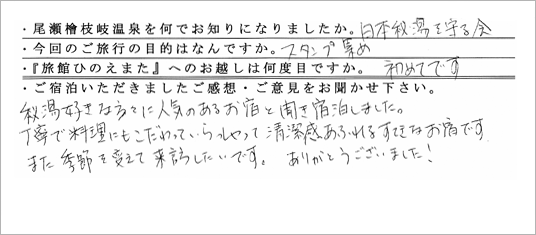 ・尾瀬檜枝岐温泉を何でお知りになりましたか。日本秘湯を守る会
・今回のご旅行の目的はなんですか。スタンプ集め
・『旅館ひのえまた』へのお越しは何度目ですか。 初めてです
・ご宿泊いただきましたご感想・ご意見をお聞かせ下さい。
秘湯好きな方々に人気のあるお宿と聞き宿泊しました。
丁寧で料理にもこだわっていらっしゃって清潔感あふれるすてきなお宿です
また季節を変えて来訪したいです。 ありがとうございました!